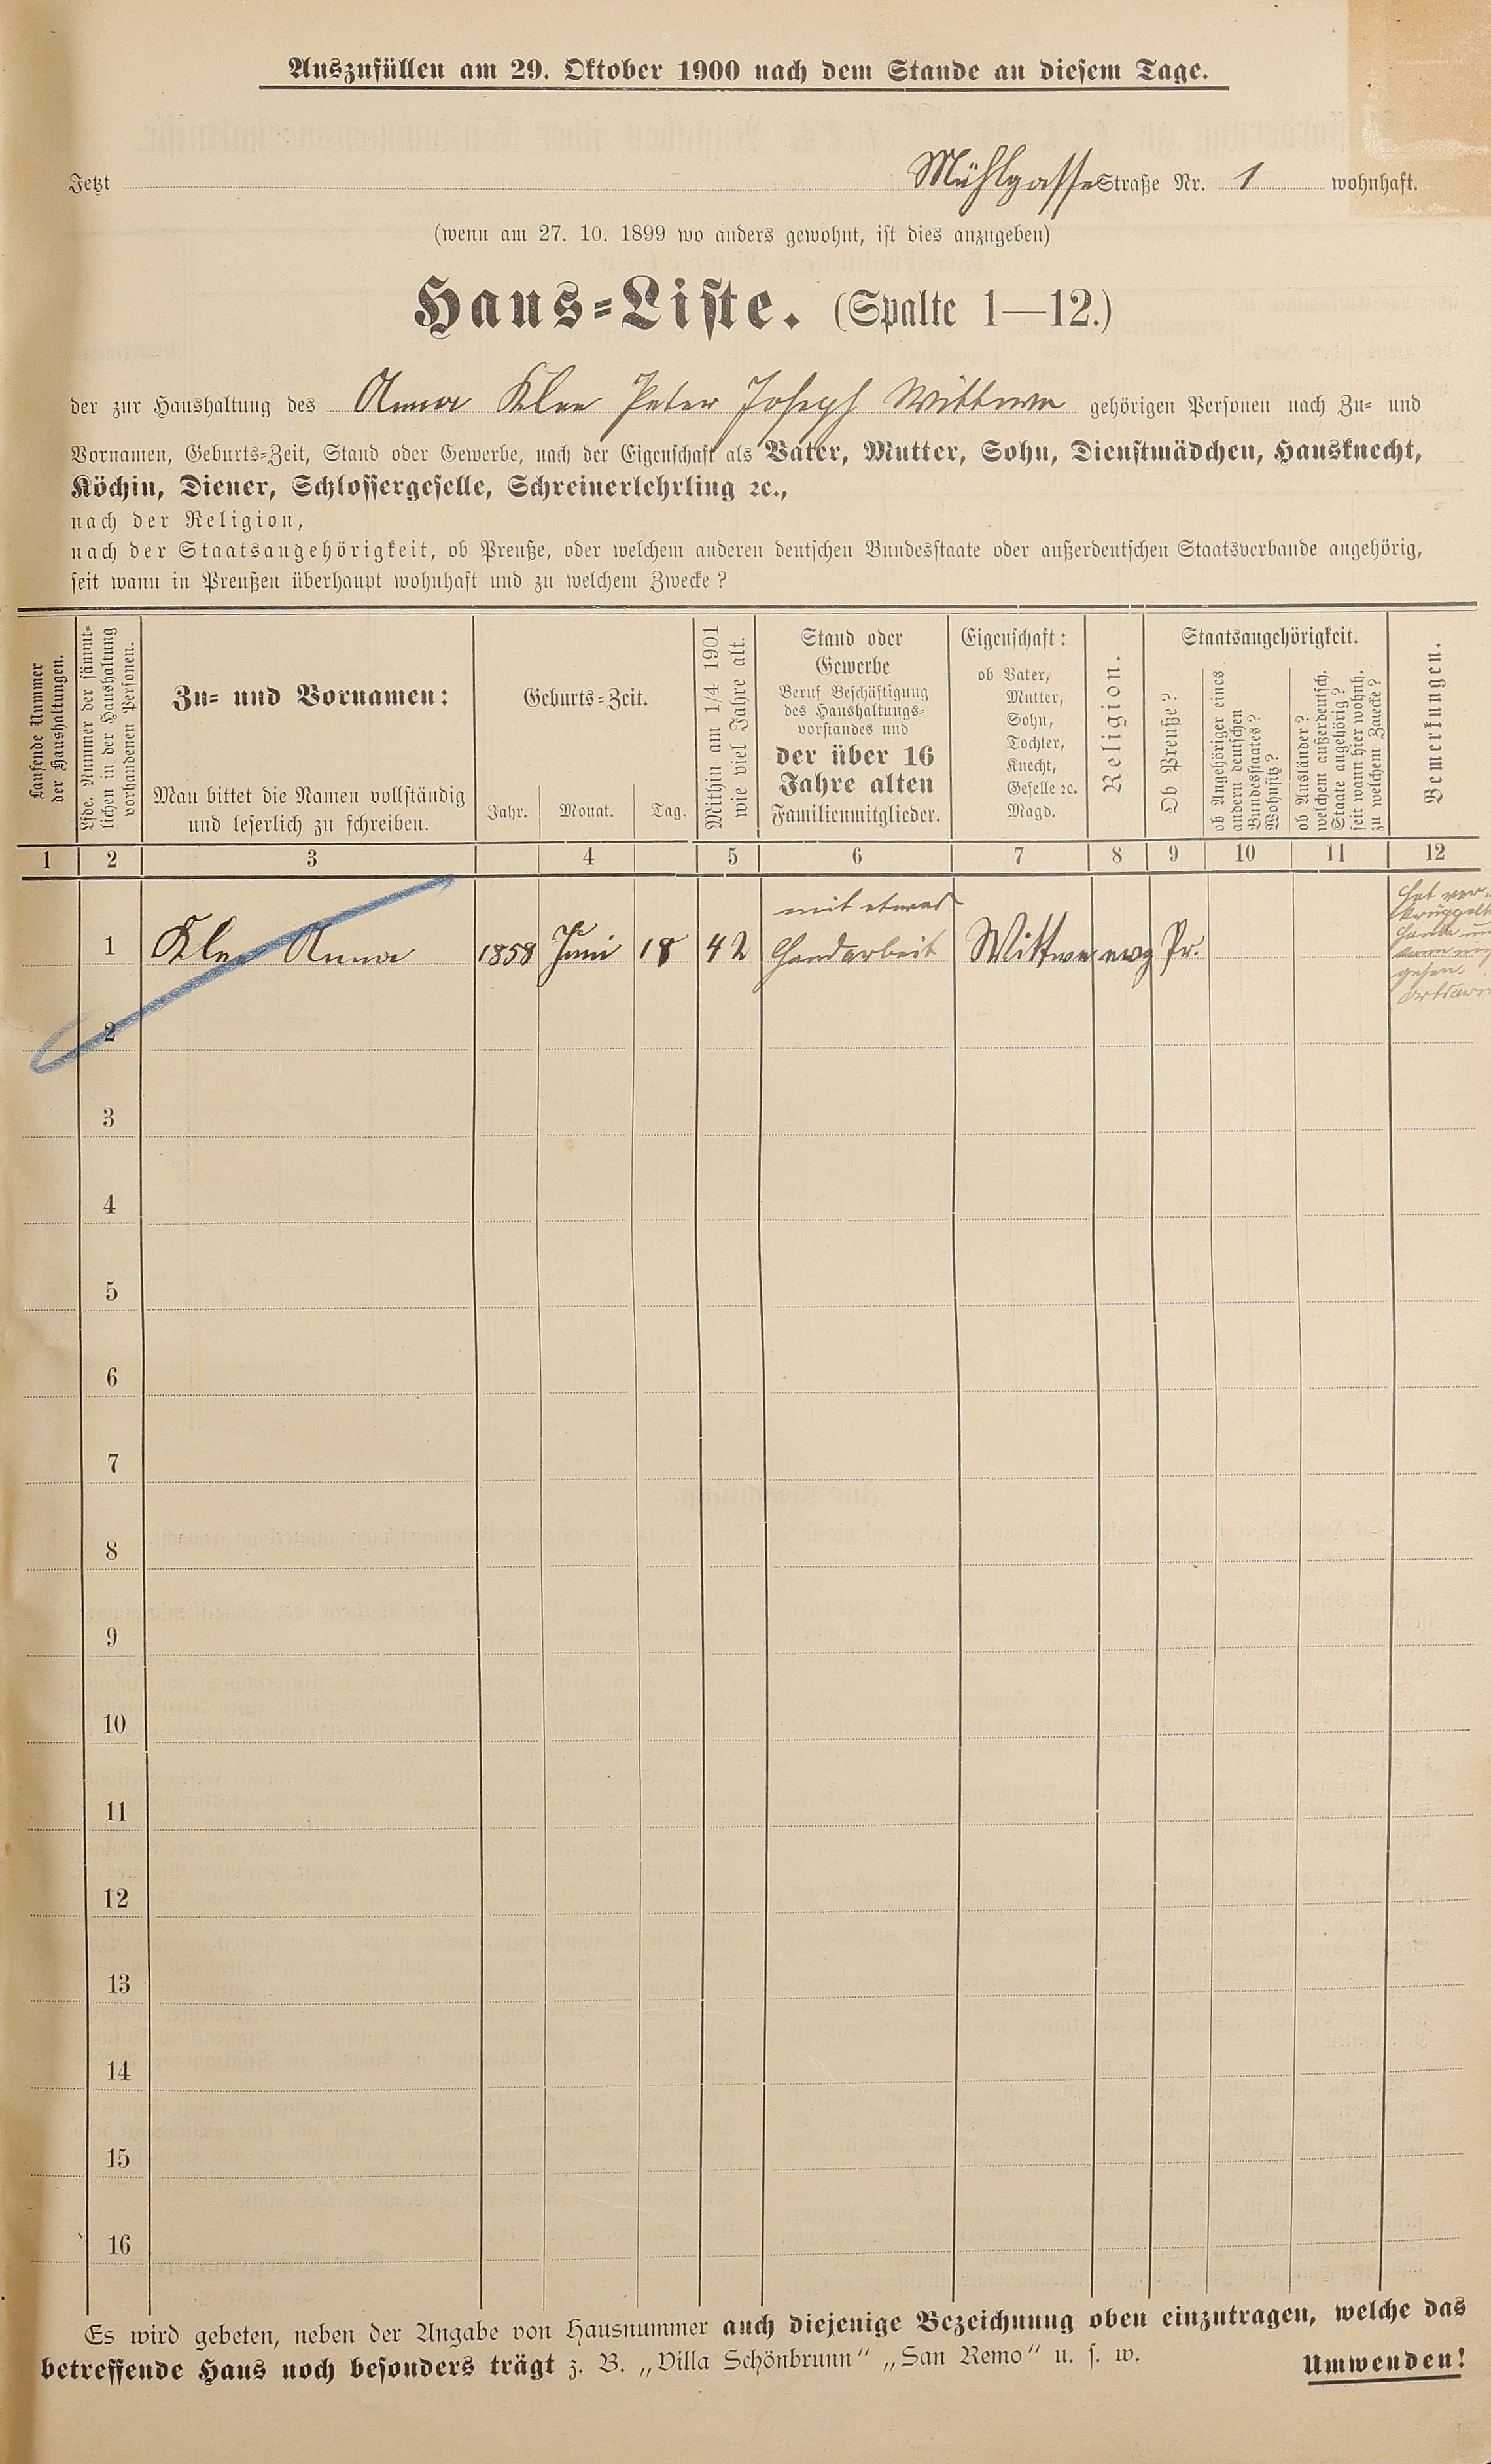 Auszufüllen am 29. Oktober 1900 nach dem Stande an diesem Tage.
Jetzt Mühlgasse Straße Nr. 1 wohnhaft.
(wenn am 27. 10. 1899 wo anders gewohnt, ist dies anzugeben)
Haus-Liste. (Spalte 1—12.)
der zur Haushaltung des Anna Klee Peter Joseph Wittwe gehörigen Personen nach Zu- und
Vornamen, Geburts-Zeit, Stand oder Gewerbe, nach der Eigenschaft als Vater, Mutter, Sohn, Dienstmädchen, Hausknecht,
Köchin, Diener, Schlossergeselle, Schreinerlehrling ꝛc.,
nach der Religion,
nach der Staatsangehörigkeit, ob Preuße, oder welchem anderen deutschen Bundesstaate oder außerdeutschen Staatsverbande angehörig,
seit wann in Preußen überhaupt wohnhaft und zu welchem Zwecke?
Laufende Nummer
der Haushaltungen.
Lfde. Nummer der sämmt-
lichen in der Haushaltung
vorhandenen Personen.
Zu- und Vornamen:
Man bittet die Namen vollständig
und leserlich zu schreiben.
Geburts-Zeit.
Jahr. Monat. Tag.
Mithin am 1/4 1901
wie viel Jahre alt.
Stand oder
Gewerbe
Beruf Beschäftigung
des Haushaltungs-
vorstandes und
der über 16
Jahre alten
Familienmitglieder.
Eigenschaft:
ob Vater,
Mutter,
Sohn,
Tochter,
Knecht,
Geselle ꝛc.
Magd.
Religion.
Staatsangehörigkeit.
Ob Preuße?
ob Angehöriger eines
andern deutschen
Bundesstaates?
Wohnsitz?
ob Ausländer?
welchem außerdeutsch.
Staate angehörig?
seit wann hier wohnh.
zu welchem Zwecke?
Bemerkungen.
1 2 3 4 5 6 7 8 9 10 11 12
1 Klee Anna 1858 Juni 18 42 mit etwas
Handarbeit Wittwe evg Pr.
hat ver-
krüppelte
gehen
2
3
4
5
6
7
8
9
10
11
12
13
14
15
16
Es wird gebeten, neben der Angabe von Hausnummer auch diejenige Bezeichnung oben einzutragen, welche das
betreffende Haus noch besonders trägt z. B. „Villa Schönbrunn“ „San Remo“ u. s. w.
Umwenden!